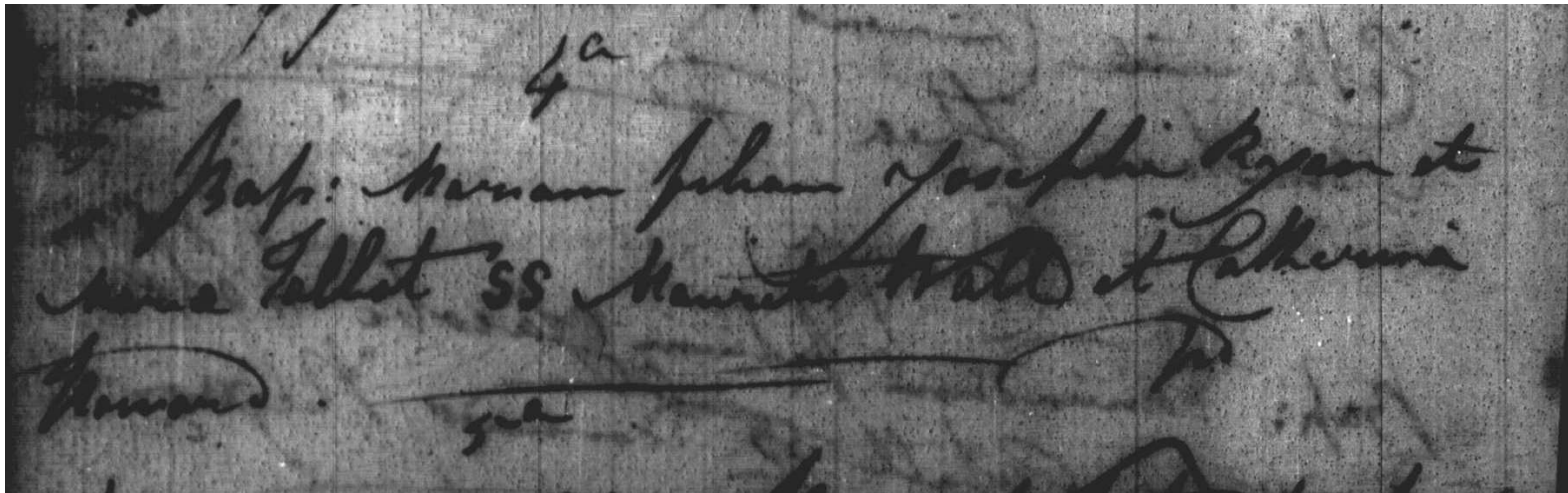 4a
Bap: Mariam filiam Josephi Ryan et
Maria Talbot SS Mauritio Wall et Catherina
Howard.
5a